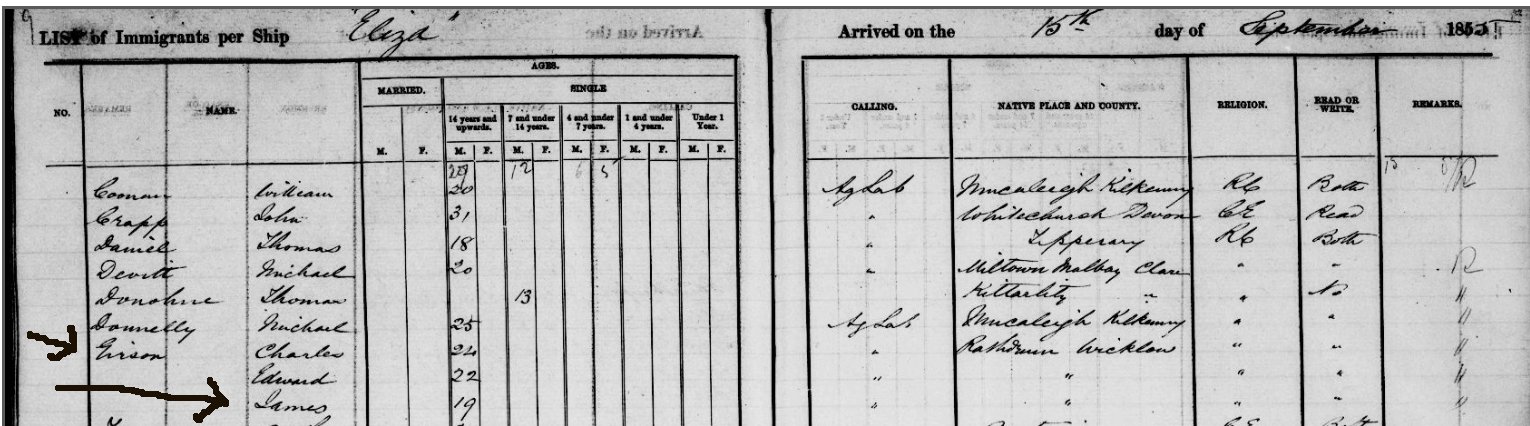 9
LIST of Immigrants per Ship "Eliza" Arrived on the 15th day of September 1855
AGES.
MARRIED. SINGLE
NO. NAME. CALLING. NATIVE PLACE AND COUNTY. RELIGION. READ OR WRITE. REMARKS.
14 years and upwards. 7 and under 14 years. 4 and under 7 years. 1 and under 4 years. Under 1 Year.
M. F. M. F. M. F. M. F. M. F. M. F.
12 6 5 15
Coman William 20 Ag Lab Mucaleigh Kilkenny RC Both R
Crapp John 31 " Whitechurch Devon CE Read
Daniel Thomas 18 " Tipperary RC Both
Devitt Michael 20 " Miltown Malbay Clare " " R
Donohue Thomas 13 " " No "
Donnelly Michael 25 Ag Lab Mucaleigh Kilkenny " " "
Girson Charles 24 " Rathdrum Wicklow " " "
Edward 22 " " " " "
James 19 " " " " "